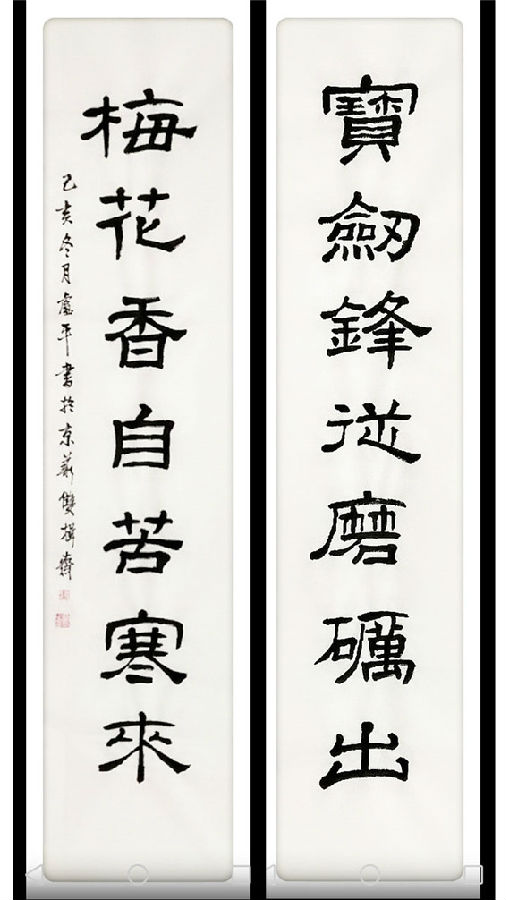 寶劒鋒從磨礪出
梅花香自苦寒來
己亥冬月盧平書於京華雙槐齋